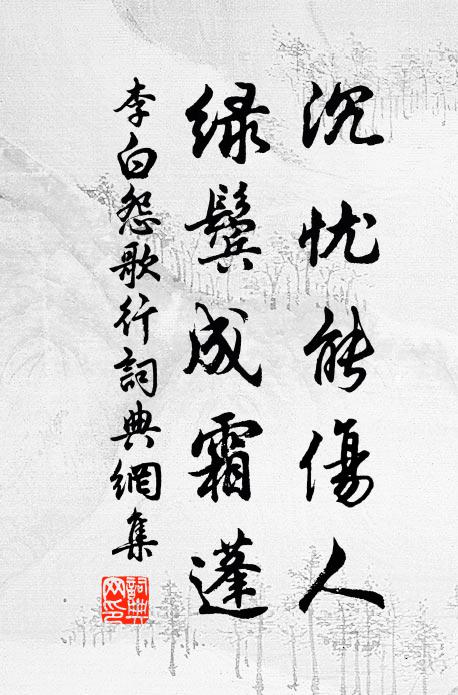 沉忧能傷人
绿鬓成霜蓬
李白怨歌行詞典網集
詞典网印